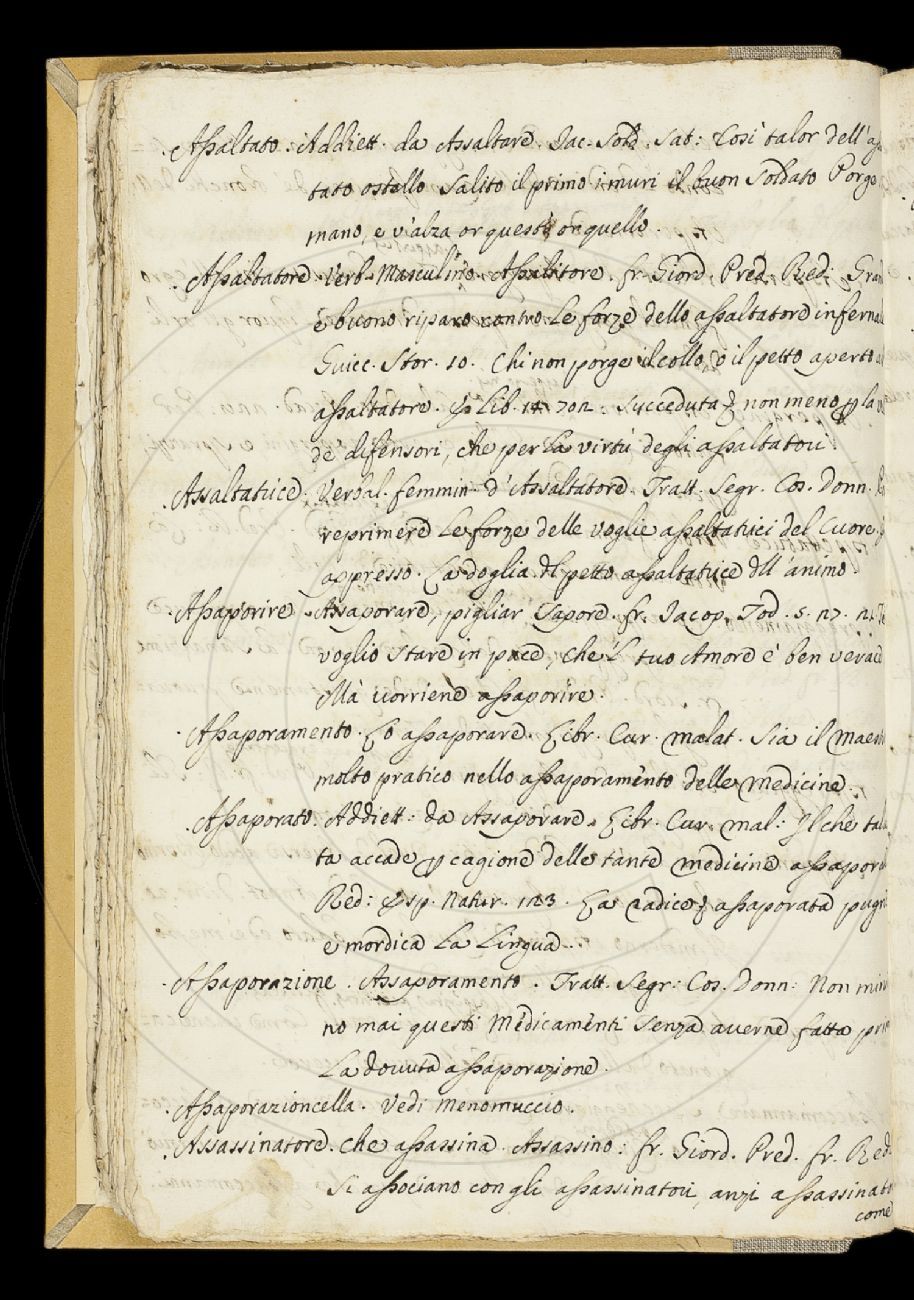 Assaltato. Addiett. da Assaltare. Iac. Sold. Sat: Così talor dell'
tato ostello Salito il primo i muri il buon Soldato Porge
mano, e v'alza or questi or quello.
Assaltatore. Verb. Masculino. Assalitore. fr. Giord. Pred. Red. Gran
è buono riparo contro le forze dello assaltatore infernale
Guicc. Stor. 10. Chi non porge il collo, o il petto aperto
assaltatore. E Lib. 14. 702. Succeduta non meno per la
de' difensori, che per la virtù degli assaltatori.
Assaltatrice. Verbal. femmin. d'Assaltatore. Tratt. Segr. Cos. Donn.
reprimere le forze delle voglie assaltatrici del Cuore.
appresso. La doglia del petto assaltatrice dell'animo.
Assaporire. Assaporare, pigliar Sapore. fr. Iacop. Tod. 5. 27.
voglio Stare in pace, che'l tuo Amore è ben verace
Mà vorriene assaporire.
Assaporamento. Lo assaporare. Libr. Cur. malat. Sia il maest
molto pratico nello assaporamento delle medicine.
Assaporato. Addiett: da Assaporare. Libr. Cur. mal: Il che tal
ta accade per cagione delle tante medicine assapor
Red: Esp. Natur. 123. La radice assaporata pugn
e mordica la Lingua.
Assaporazione. Assaporamento. Tratt. Segr: Cos. Donn: Non min
no mai questi Medicamenti Senza averne fatta prim
La dovuta assaporazione.
Assaporazioncella. Vedi Menomuccio.
Assassinatore. Che assassina. Assassino: fr. Giord. Pred. fr. Red.
Si associano con gli assassinatori, anzi assassinato
come